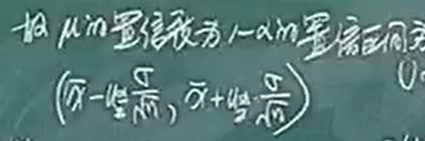 故 μ的置信度为 1-α的置信区间为
(x̄ - u_{α/2} σ/√n, x̄ + u_{α/2} σ/√n)